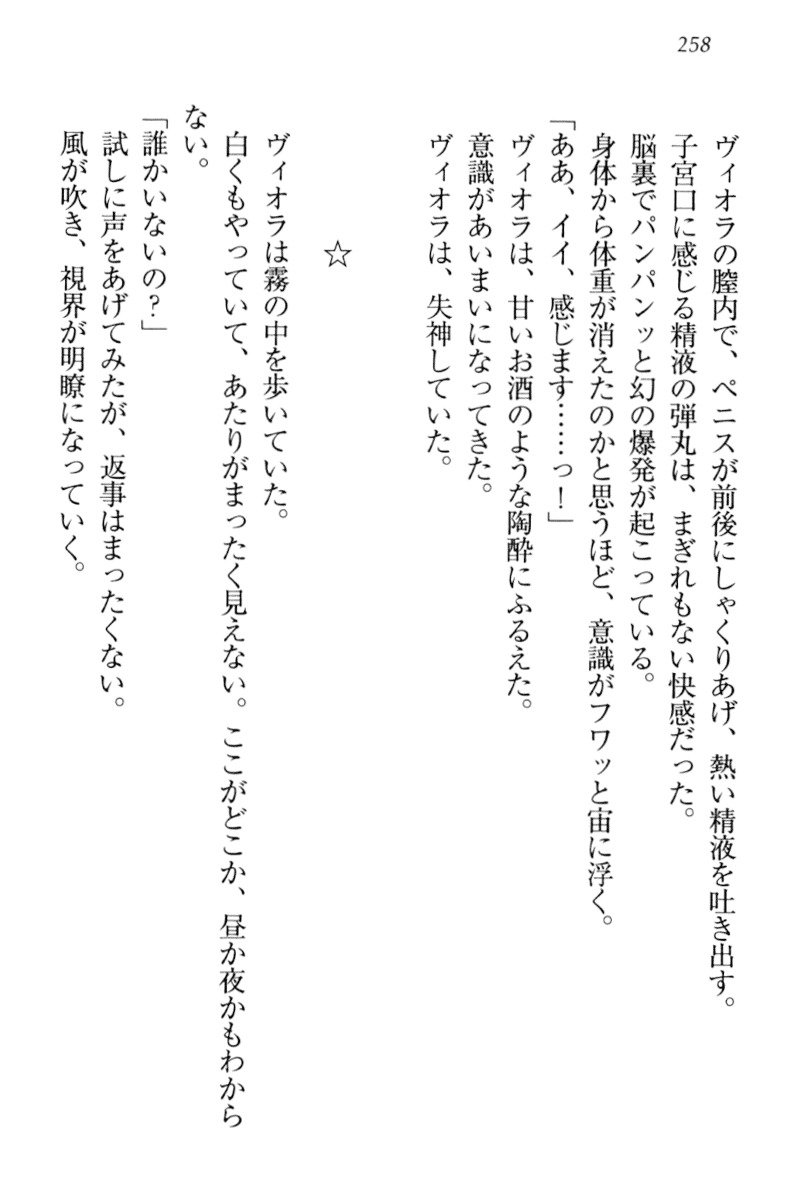 258
ヴィオラの膣内で、ペニスが前後にしゃくりあげ、熱い精液を吐き出す。
子宮口に感じる精液の弾丸は、まぎれもない快感だった。
脳裏でパンパンッと幻の爆発が起こっている。
身体から体重が消えたのかと思うほど、意識がフワッと宙に浮く。
「ああ、イイ、感じます……っ！」
ヴィオラは、甘いお酒のような陶酔にふるえた。
意識があいまいになってきた。
ヴィオラは、失神していた。
☆
ヴィオラは霧の中を歩いていた。
白くもやっていて、あたりがまったく見えない。ここがどこか、昼か夜かもわから
ない。
「誰かいないの？」
試しに声をあげてみたが、返事はまったくない。
風が吹き、視界が明瞭になっていく。